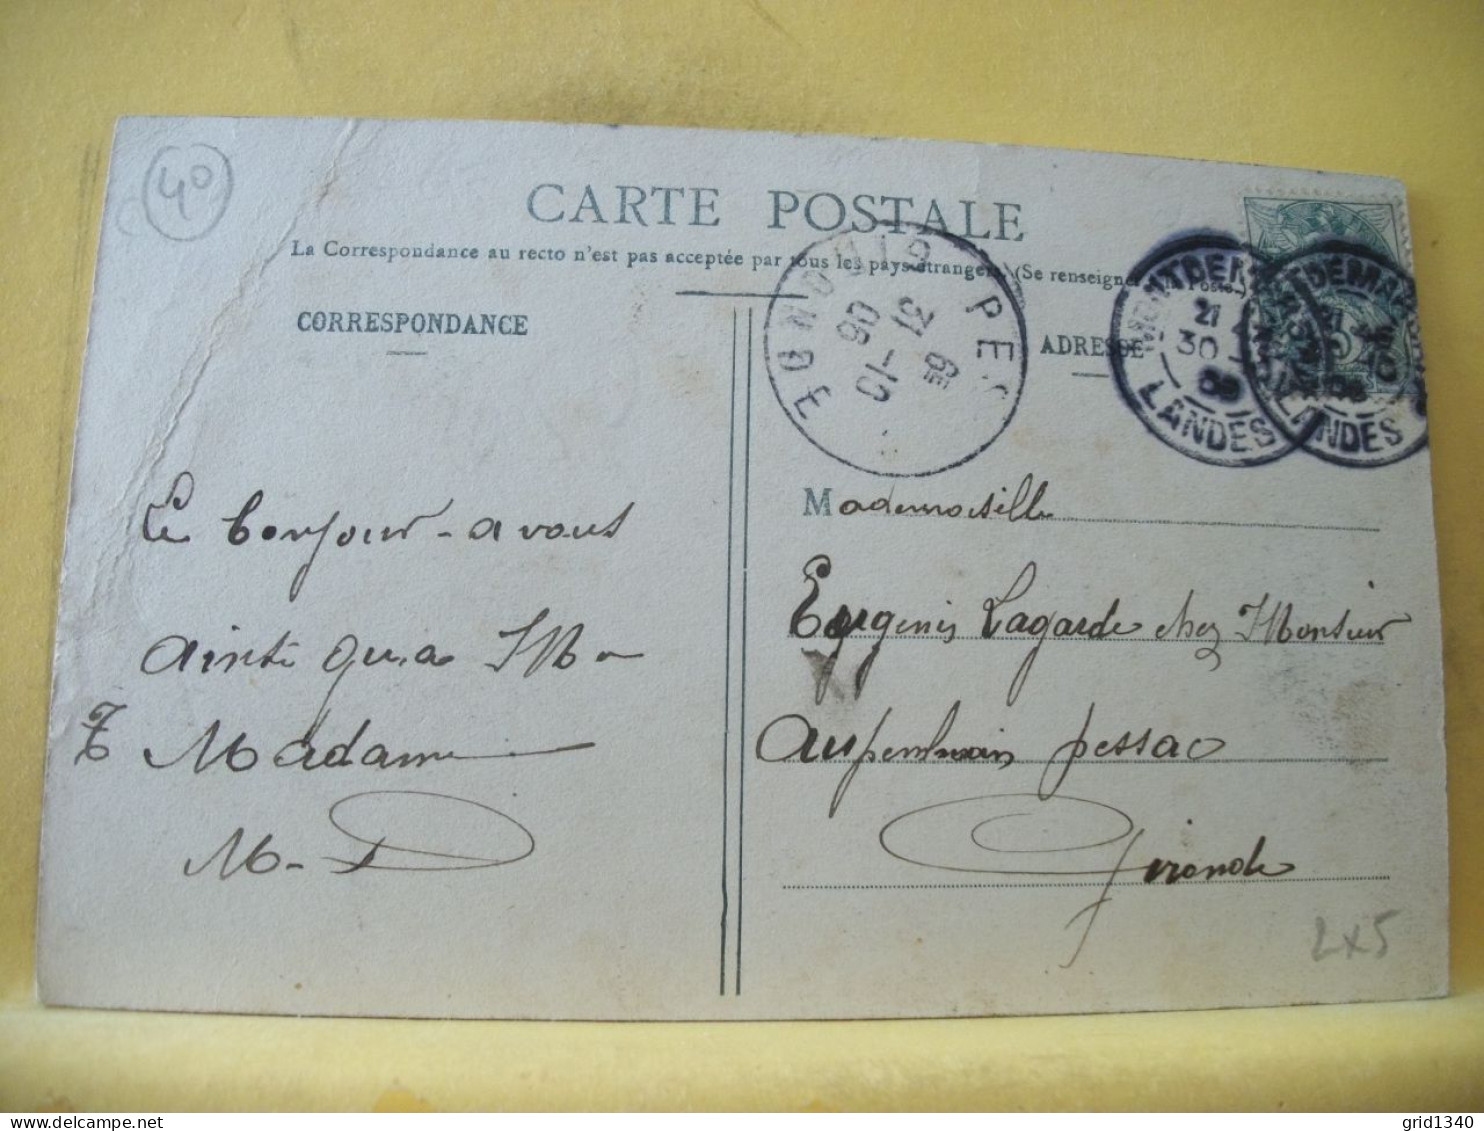 40
CARTE POSTALE
La Correspondance au recto n'est pas acceptée par tous les pays étrangers (Se renseigner
CORRESPONDANCE
ADRESSE
PES
GIRONDE
6E
31 -10
06
MONTDEMARSAN
21
30
LANDES
LANDES
Le bonjour - a vous
ainsi qu'a M
et Madame
M. D
Mademoiselle
Eugenie Lagarde chez Monsieur
pessac
Gironde
2x5
grid1340